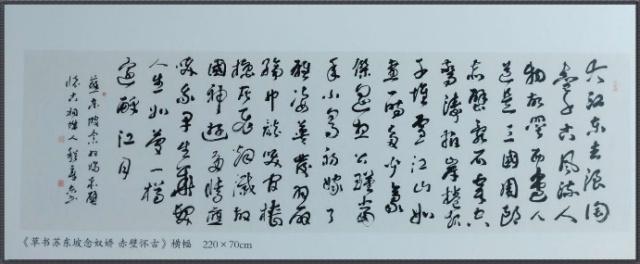 大江东去浪淘
尽千古风流人
物故垒西边人
道是三國周郎
赤壁乱石穿空
驚濤拍岸捲起
千堆雪江山如
畫一時多少豪
傑遥想公瑾當
年小喬初嫁了
雄姿英發羽扇
綸巾談笑间樯
橹灰飛烟滅故
國神遊多情應
笑我早生華髮
人生如夢一樽
還酹江月
蘇東坡念奴嬌赤壁
懷古
《草书苏东坡念奴娇 赤壁怀古》横幅 220×70cm